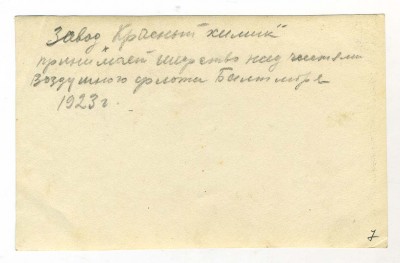 Завод "Красный химик"
принимает шефство над частями
Воздушного флота Балтморя
1923 г.
7